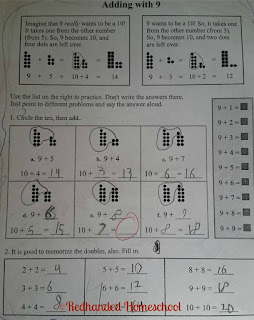 Adding with 9
Imagine that 9 really wants to be a 10!
It takes one from the other number
(from 5). So, 9 becomes 10, and
four dots are left over.
9 + 5 = 10 + 4 = 14
9 wants to be a 10! So, it takes one
from the other number (from 3).
So, 9 becomes 10, and two dots
are left over.
9 + 3 = 10 + 2 = 12
Use the list on the right to practice. Don't write the answers there.
Just point to different problems and say the answer aloud.
1. Circle the ten, then add.
a. 9 + 5
b. 9 + 4
c. 9 + 7
10 + 4 = 14
10 + 3 = 13
10 + 6 = 16
d. 9 + 6
e. 9 + 8
f. 9 +
10 + 5 = 15
10 + 7 =
10 + 8 = 18
9 + 1 =
9 + 2 =
9 + 3 =
9 + 4 =
9 + 5 =
9 + 6 =
9 + 7 =
9 + 8 =
9 + 9 =
2. It is good to memorize the doubles, also. Fill in.
2 + 2 = 4
3 + 3 = 6
4 + 4 = 8
5 + 5 = 10
6 + 6 = 12
8 + 8 = 16
9 + 9 = 18
10 + 10 = 20
Redhanded Homeschool